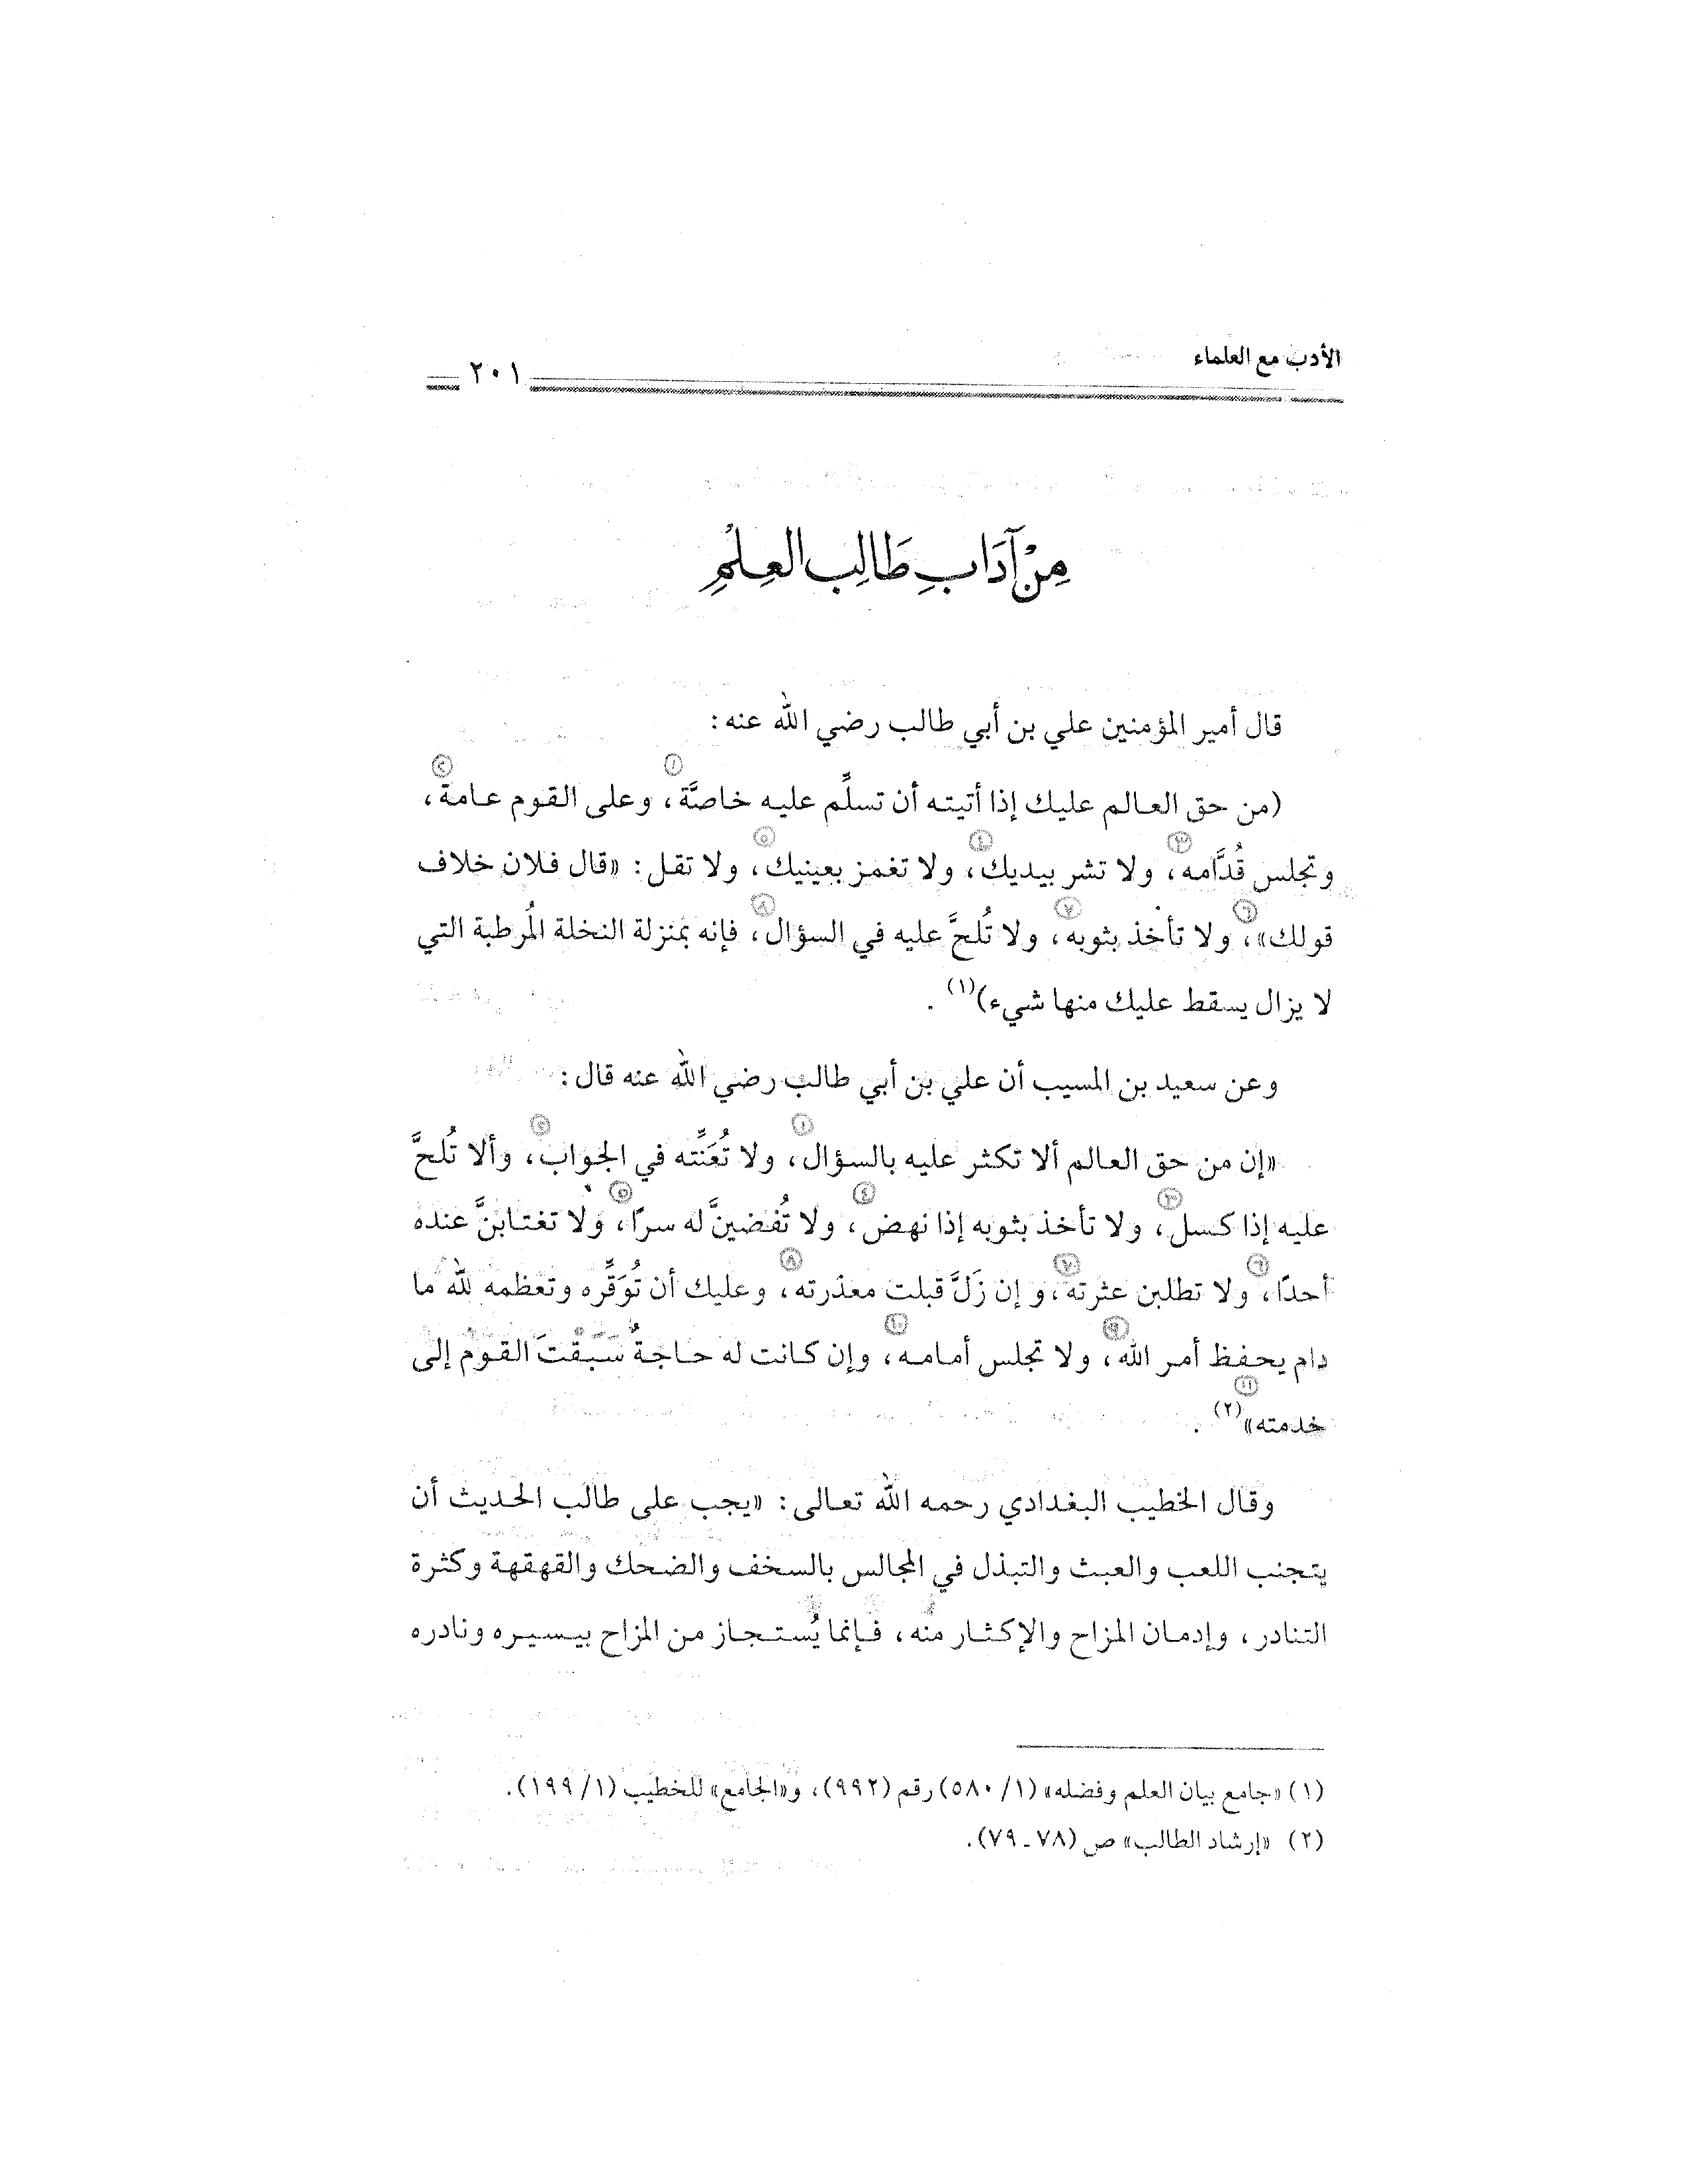 الأدب مع العلماء
٢٠١
مِنْ آدَابِ طَالِبِ العِلْمِ
قال أمير المؤمنين علي بن أبي طالب رضي الله عنه :
١ ٢
(من حق العالم عليك إذا أتيته أن تسلِّم عليه خاصَّة، وعلى القوم عامة،
٣ ٤ ٥
وتجلس قُدَّامه، ولا تشر بيديك، ولا تغمز بعينيك، ولا تقل: «قال فلان خلاف
٦ ٧ ٨
قولك»، ولا تأخذ بثوبه، ولا تُلحَّ عليه في السؤال، فإنه بمنزلة النخلة المُرطبة التي
لا يزال يسقط عليك منها شيء)(١) .
وعن سعيد بن المسيب أن علي بن أبي طالب رضي الله عنه قال:
١ ٢
«إن من حق العالم ألا تكثر عليه بالسؤال، ولا تُعَنِّته في الجواب، وألا تُلحَّ
٣ ٤ ٥
عليه إذا كسل، ولا تأخذ بثوبه إذا نهض، ولا تُفضينَّ له سرًا، ولا تغتابنَّ عنده
٦ ٧ ٨
أحدًا، ولا تطلبن عثرته، وإن زَلَّ قبلت معذرته، وعليك أن تُوَقِّره وتعظمه لله ما
٩ ١٠
دام يحفظ أمر الله، ولا تجلس أمامه، وإن كانت له حاجةٌ سَبَقْتَ القوْم إلى
١١
خدمته»(٢) .
وقال الخطيب البغدادي رحمه الله تعالى: «يجب على طالب الحديث أن
يتجنب اللعب والعبث والتبذل في المجالس بالسخف والضحك والقهقهة وكثرة
التنادر، وإدمان المزاح والإكثار منه، فإنما يُستجاز من المزاح بيسيره ونادره
(١) «جامع بيان العلم وفضله» (١/ ٥٨٠) رقم (٩٩٢)، و«الجامع» للخطيب (١/ ١٩٩).
(٢) «إرشاد الطالب» ص (٧٨ ـ ٧٩).